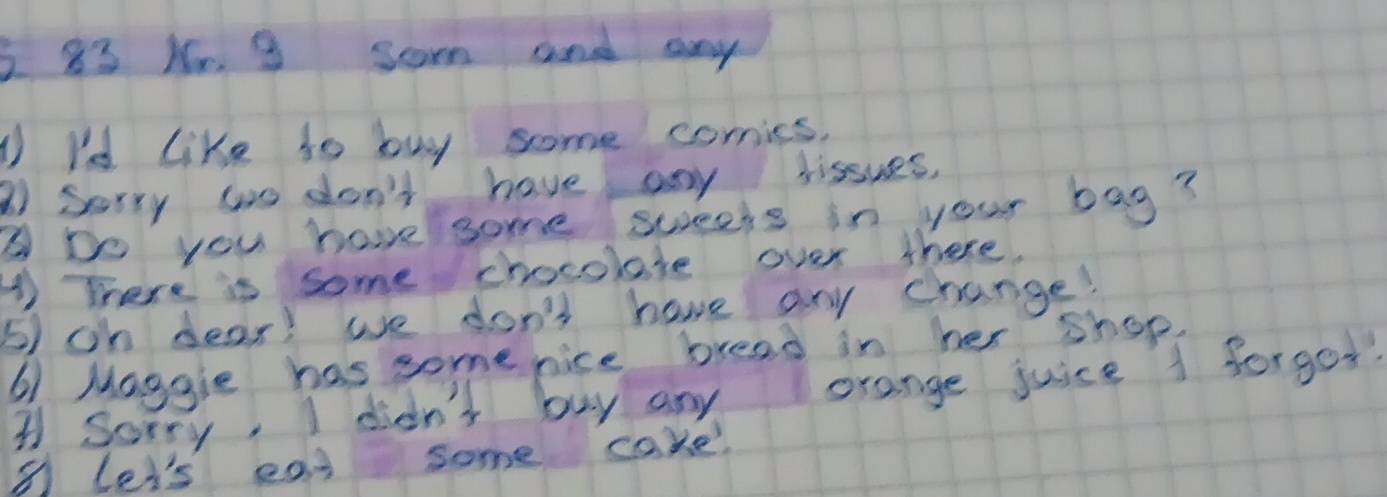 S 83 Nr. 9 som and any
1) I'd like to buy some comics.
2) Sorry we don't have any tissues.
3) Do you have some sweets in your bag?
4) There is some chocolate over there.
5) Oh dear! We don't have any change!
6) Maggie has some nice bread in her shop.
7) Sorry, I didn't buy any orange juice I forgot!
8) Let's eat some cake!